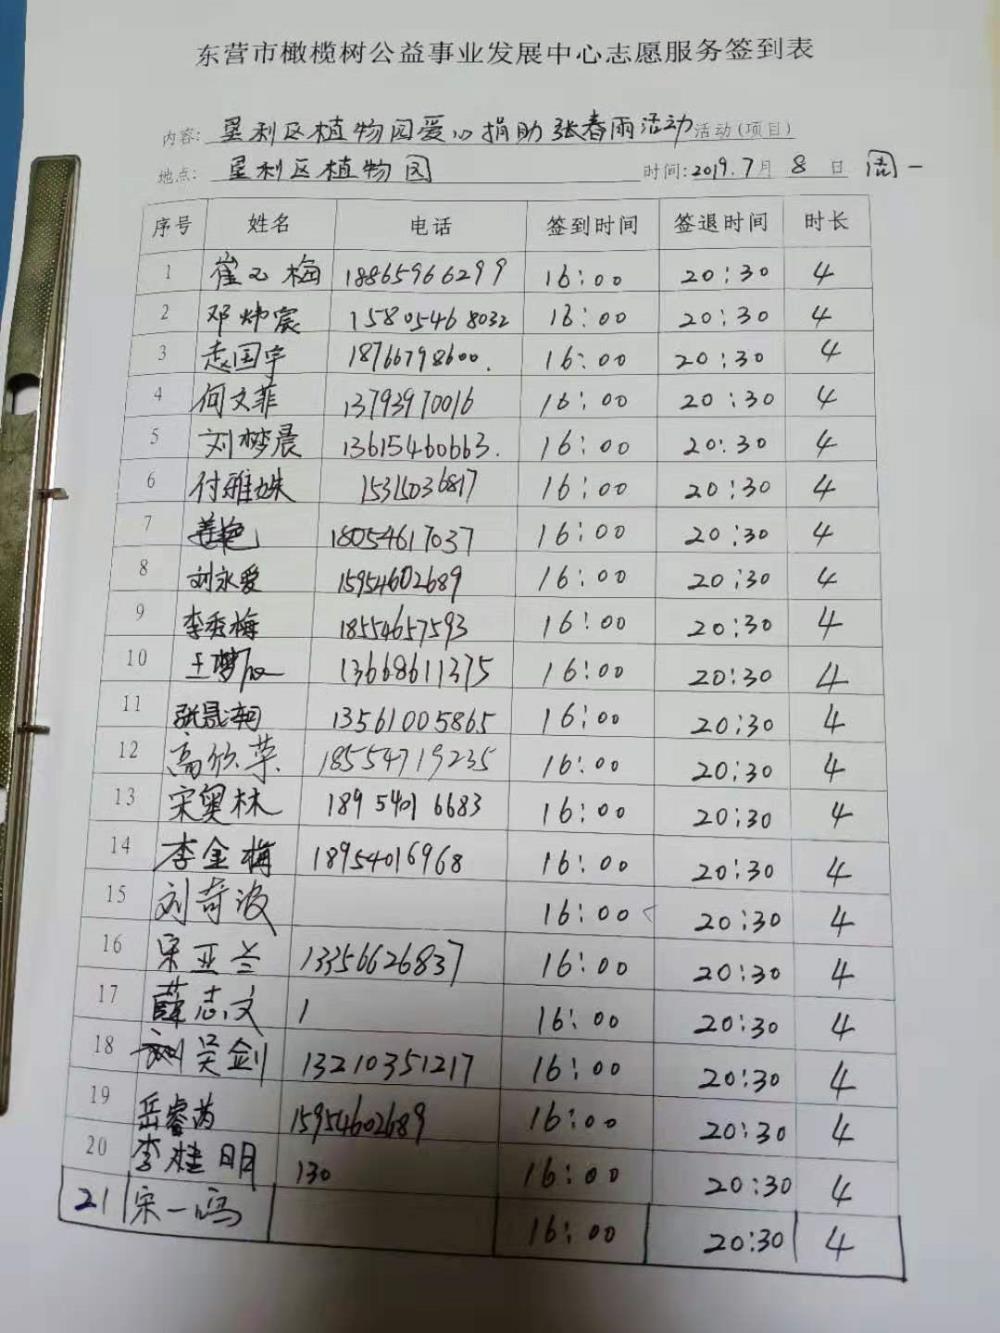 东营市橄榄树公益事业发展中心志愿服务签到表
内容: 垦利区植物园爱心捐助张春雨活动 活动(项目)
地点: 垦利区植物园 时间:2019.7月 8 日 周一
序号 姓名 电话 签到时间 签退时间 时长
1 崔玉梅 18865966299 16:00 20:30 4
2 邓炜宸 15805468032 16:00 20:30 4
3 赵国宇 18766798600. 16:00 20:30 4
4 何文菲 13793970016 16:00 20:30 4
5 刘梦晨 13615460663. 16:00 20:30 4
6 付雅姝 15315036817 16:00 20:30 4
7 18054617037 16:00 20:30 4
8 刘永爱 15954602689 16:00 20:30 4
9 李秀梅 18554657593 16:00 20:30 4
10 王梦 13668611375 16:00 20:30 4
11 张晟 13561005865 16:00 20:30 4
12 高欣荣 18554719235 16:00 20:30 4
13 宋奥林 18954016683 16:00 20:30 4
14 李金梅 18954016968 16:00 20:30 4
15 刘奇波 16:00 20:30 4
16 宋亚兰 13356626837 16:00 20:30 4
17 薛志文 1 16:00 20:30 4
18 吴剑 13210351217 16:00 20:30 4
19 岳睿芮 15954602689 16:00 20:30 4
20 李桂明 130 16:00 20:30 4
21 宋一鸣 16:00 20:30 4